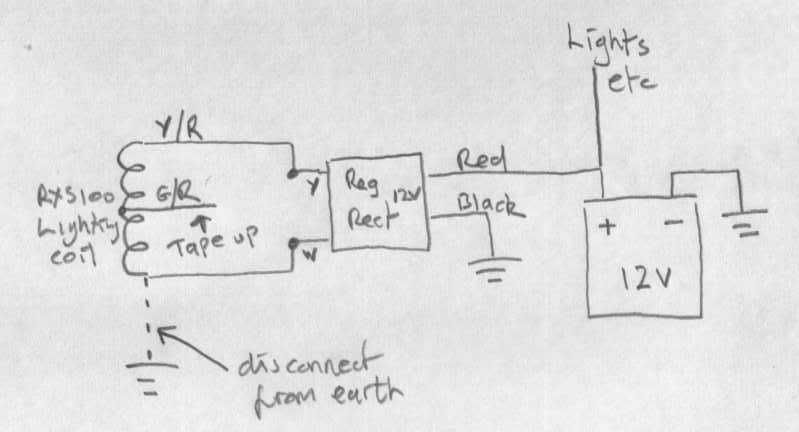 Lights
etc
Y/R
RXS100
Lighting
coil
G/R
Tape up
Y
W
Reg
Rect
12V
Red
Black
+
−
12V
disconnect
from earth